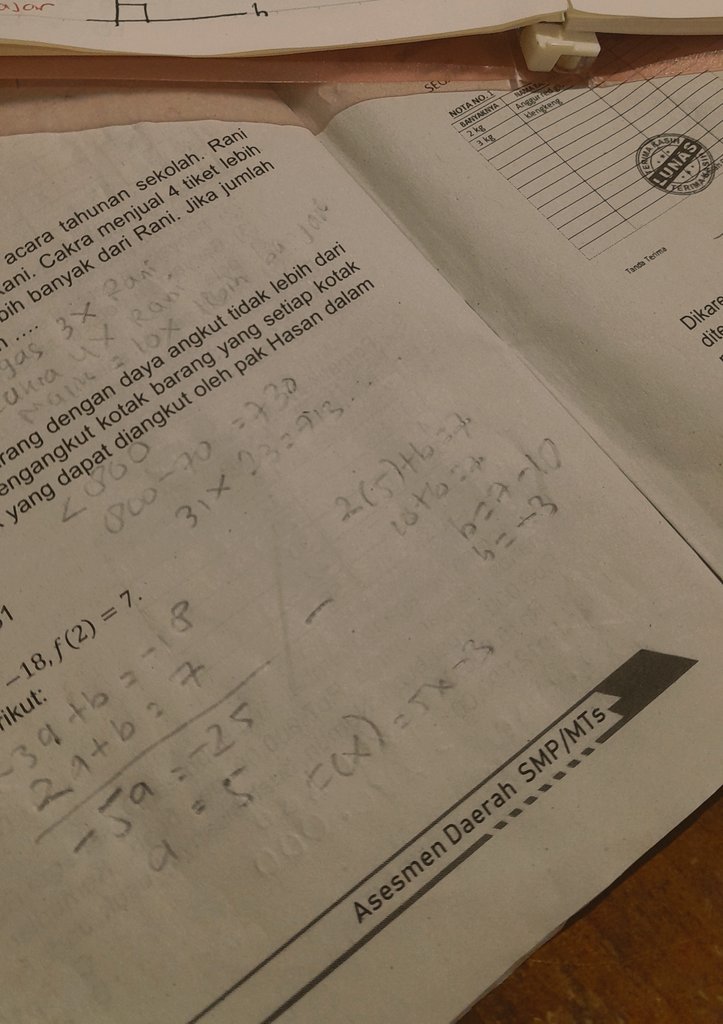 ajar
h
acara tahunan sekolah. Rani
ani. Cakra menjual 4 tiket lebih
bih banyak dari Rani. Jika jumlah
n ....
gas 3x Rani
cakra 4x Rani
= 10x lebih
arang dengan daya angkut tidak lebih dari
engangkut kotak barang yang setiap kotak
yang dapat diangkut oleh pak Hasan dalam
< 800
800 - 70 = 730
31 x 23 = 713
2(5)+b=7
10+b=7
b=7-10
b=-3
-18, f(2) = 7.
rikut:
-3a+b=-18
2a+b=7
-
-5a=-25
a=5
f(x)=5x-3
Asesmen Daerah SMP/MTs
NOTA NO. 1
BANYAKNYA
2 kg Anggur
3 kg klengkeng
TERIMA KASIH
LUNAS
TERIMA KASIH
Tanda Terima
Dikare
dite